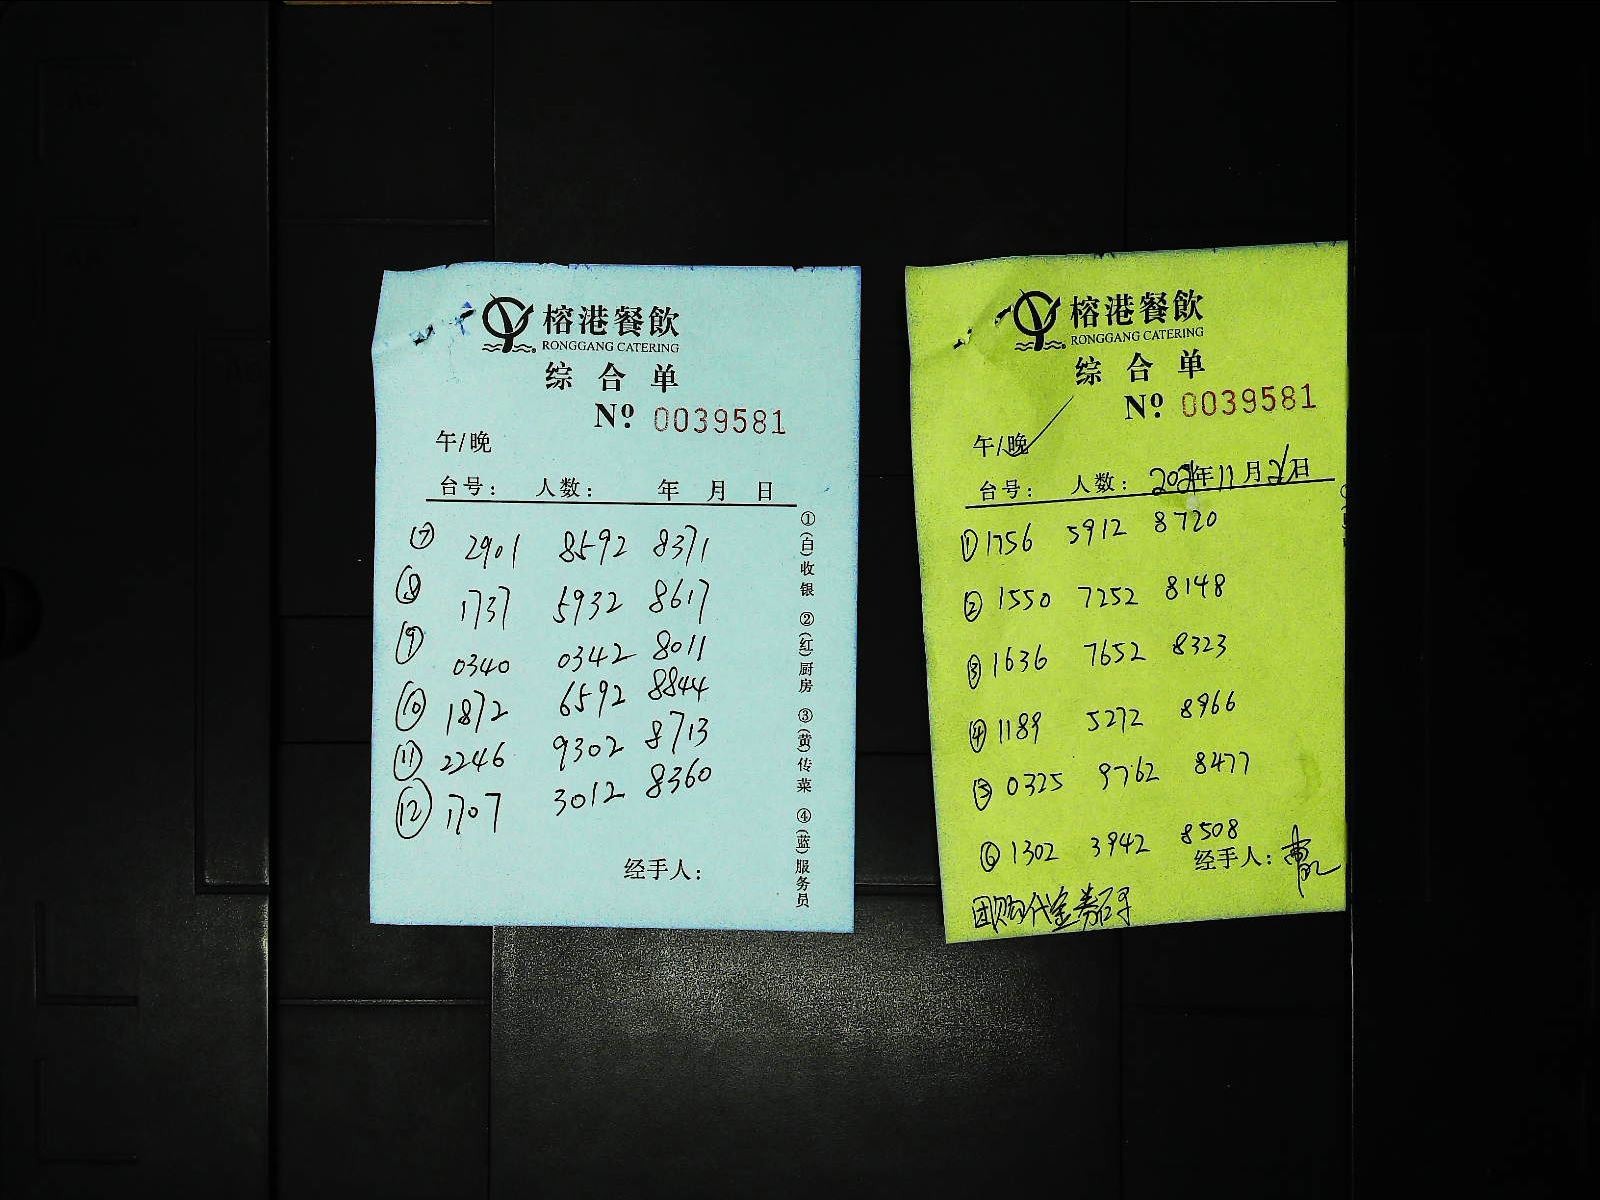 榕港餐飲
RONGGANG CATERING
综合单
Nº 0039581
午/晚
台号： 人数： 年 月 日
⑦ 2901 8592 8371
⑧ 1737 5932 8617
⑨ 0340 0342 8011
⑩ 1872 6592 8844
⑪ 2246 9302 8713
⑫ 1707 3012 8360
经手人：
①(白)收银 ②(红)厨房 ③(黄)传菜 ④(蓝)服务员
榕港餐飲
RONGGANG CATERING
综合单
Nº 0039581
午/晚
台号： 人数： 2021年11月21日
① 1756 5912 8720
② 1550 7252 8148
③ 1636 7652 8323
④ 1189 5272 8966
⑤ 0325 9762 8477
⑥ 1302 3942 8508
经手人：
团购代金券码